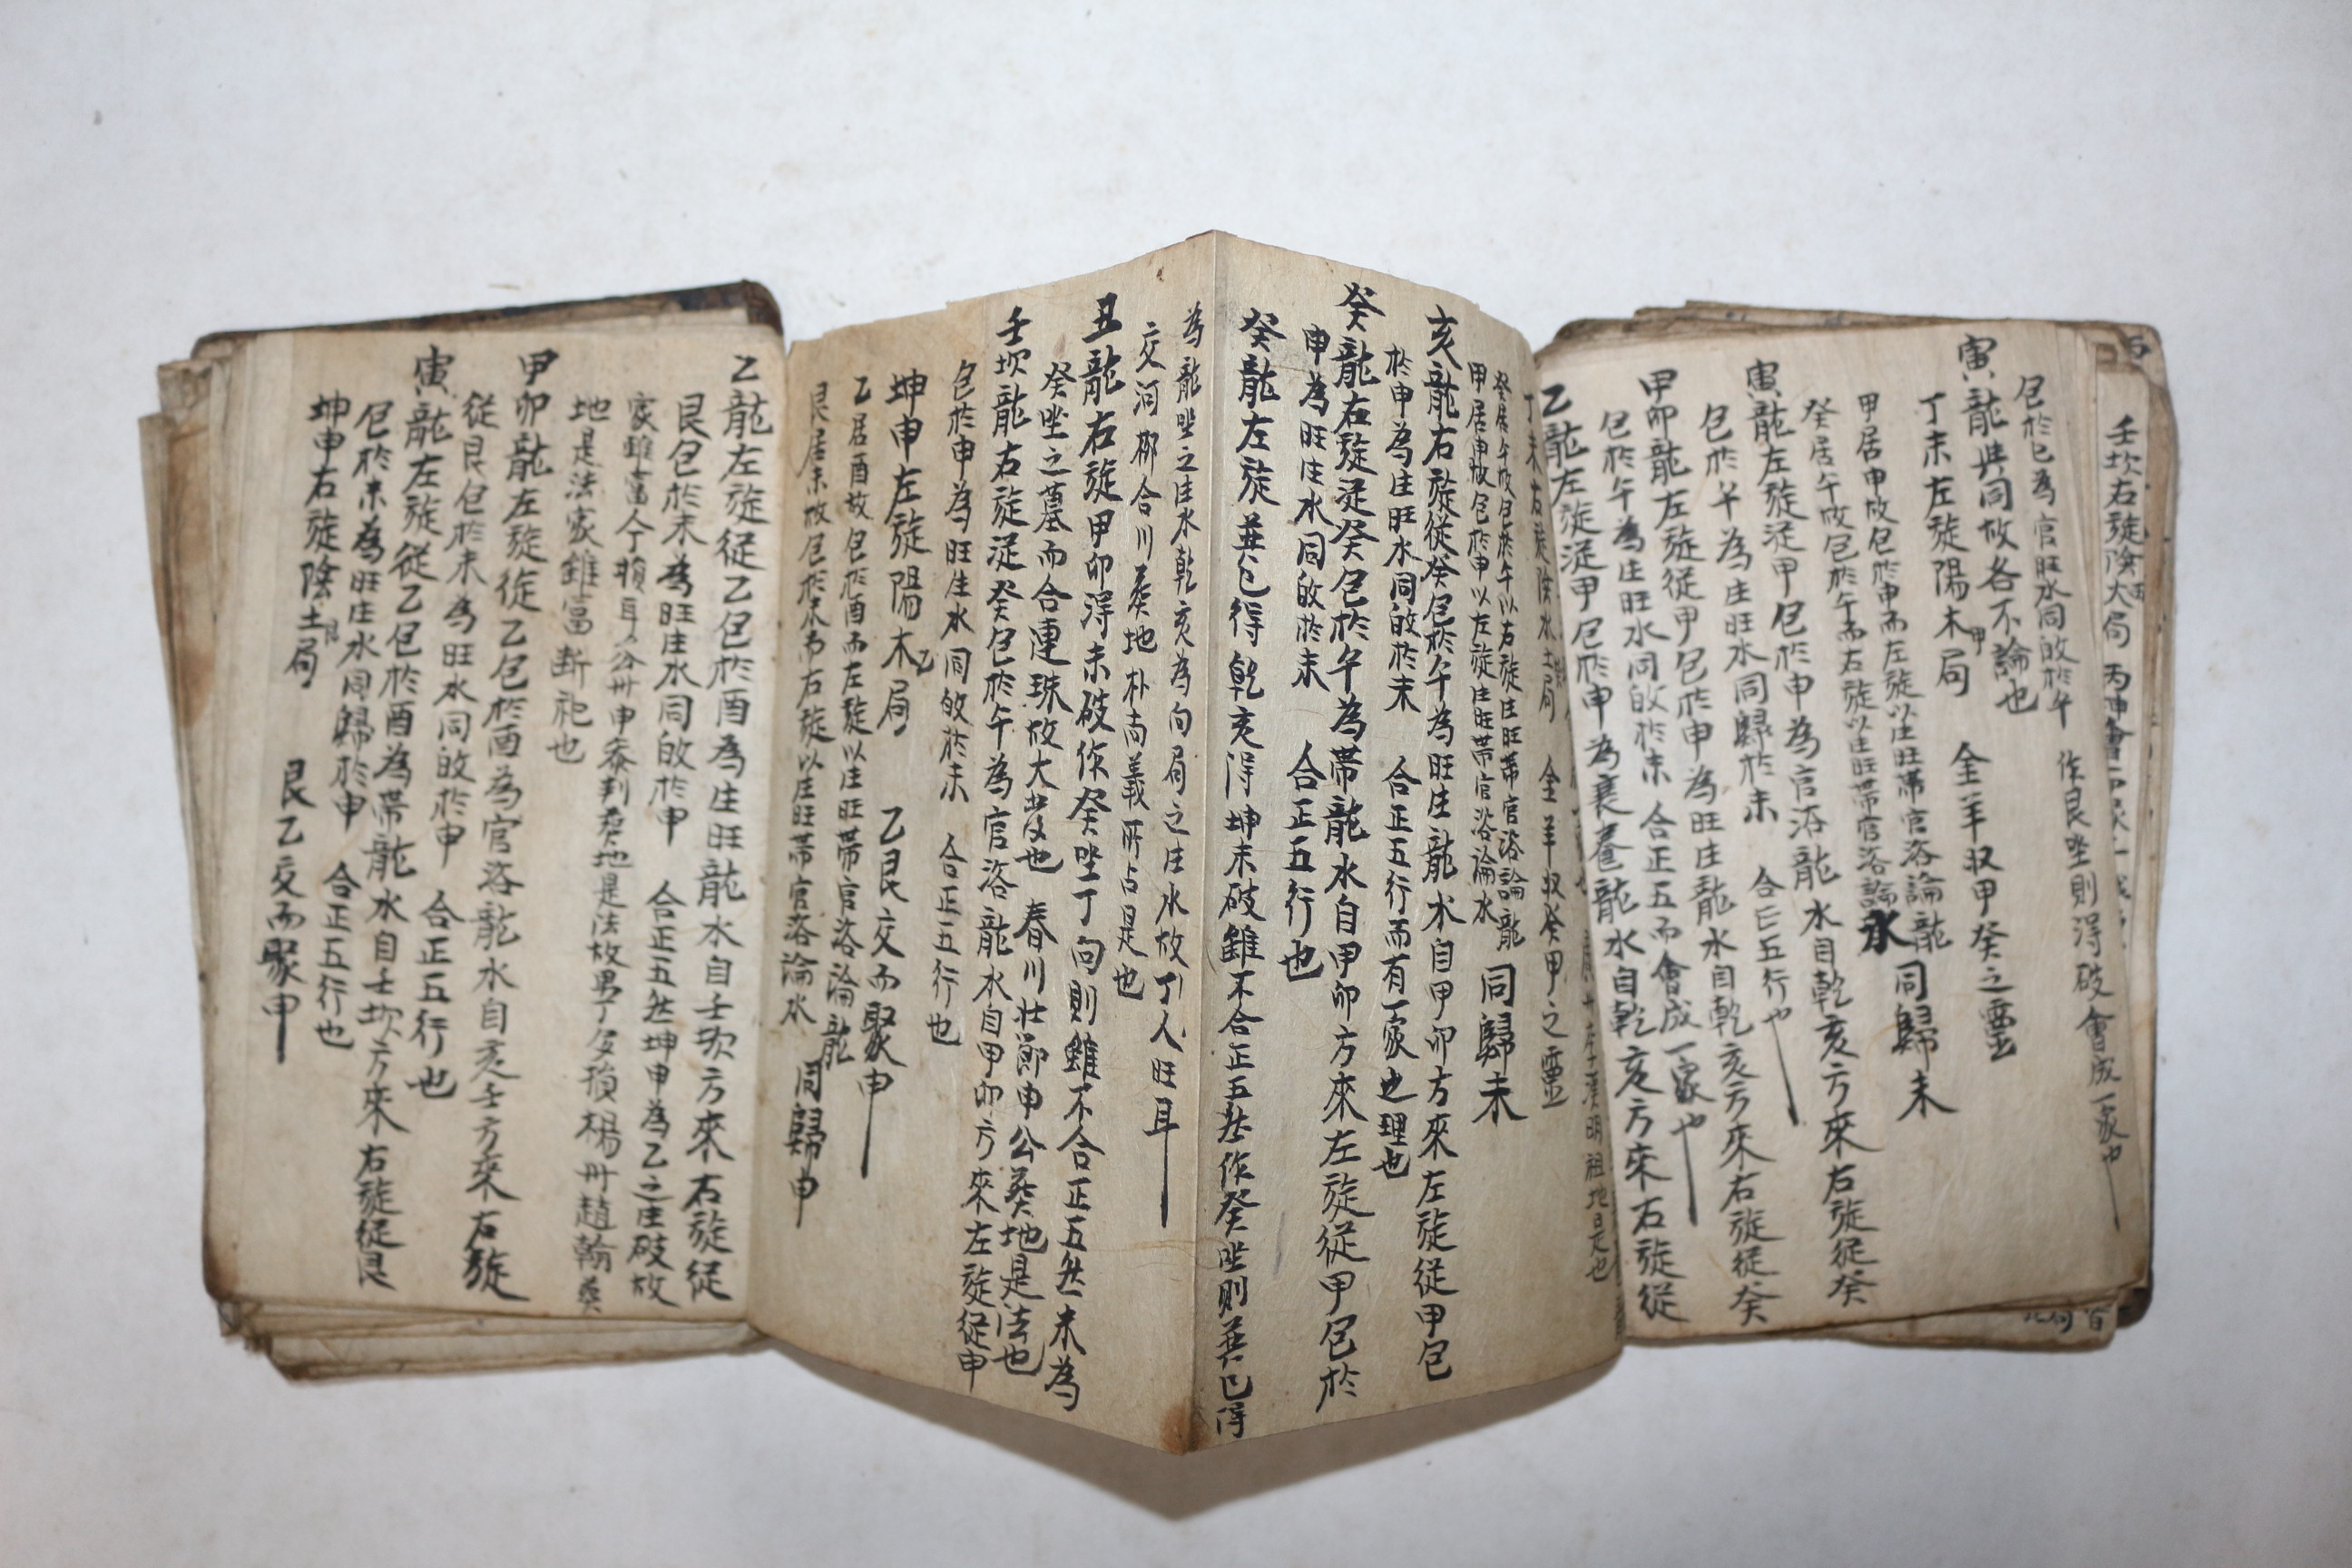 壬坎右旋陰大局
包於巳為官旺水同破於午 作艮坐則得破會成一家也
寅龍與同故各不論也
丁未左旋陽木局 金羊収甲癸之靈
甲
甲居申故包於申而左旋以生旺帶官浴論龍
癸居午故包於午而右旋以生旺帶官浴論水 同歸未
寅龍左旋從甲包於申為官浴龍水自乾亥方來右旋從癸
包於午為生旺水同歸於未 合正五行也
甲卯龍左旋從甲包於申為旺生龍水自乾亥方來右旋從癸
包於午為生旺水同破於未 合正五而會成一家也
乙龍左旋從甲包於申為衰養龍水自乾亥方來右旋從
丁未右旋陰水局 金羊収癸甲之靈
癸居午故包於午以右旋生旺帶官浴論龍
甲居申故包於申以左旋生旺帶官浴論水 同歸未
亥龍右旋從癸包於午為旺生龍水自甲卯方來左旋從甲包
於申為生旺水同破於未 合正五行而有一家之理也
癸龍右旋從癸包於午為帶龍水自甲卯方來左旋從甲包於
申為旺生水同破於未 合正五行也
癸龍左旋兼巳得乾亥得坤未破雖不合正五然作癸坐則兼巳得
為龍坐之生水乾亥為向局之生水故丁人旺耳
交河鄉合川葬地朴尚義所占是也
丑龍右旋甲卯得未破作癸坐丁向則雖不合正五然未為
癸坐之墓而合連珠故大發也 春川壮節申公葬地是法也
壬坎龍右旋從癸包於午為官浴龍水自甲卯方來左旋從申
包於申為旺生水同破於未 合正五行也
坤申左旋陽木局 乙艮交而聚申
乙
乙居酉故包於酉而左旋以生旺帶官浴論龍
艮居未故包於未而右旋以生旺帶官浴論水 同歸申
乙龍左旋從乙包於酉為生旺龍水自壬坎方來右旋從
艮包於未為旺生水同破於申 合正五然坤申為乙之生破故
家雖富人丁損耳 公州申泰判葬地是法故男丁多損楊州趙翰葬
地是法家雖富斷祀也
甲卯龍左旋從乙包於酉為官浴龍水自亥壬方來右旋
從艮包於未為旺水同破於申 合正五行也
寅龍左旋從乙包於酉為帶龍水自壬坎方來右旋從艮
包於未為旺生水同歸於申 合正五行也
坤申右旋陰土局 艮乙交而聚申
艮